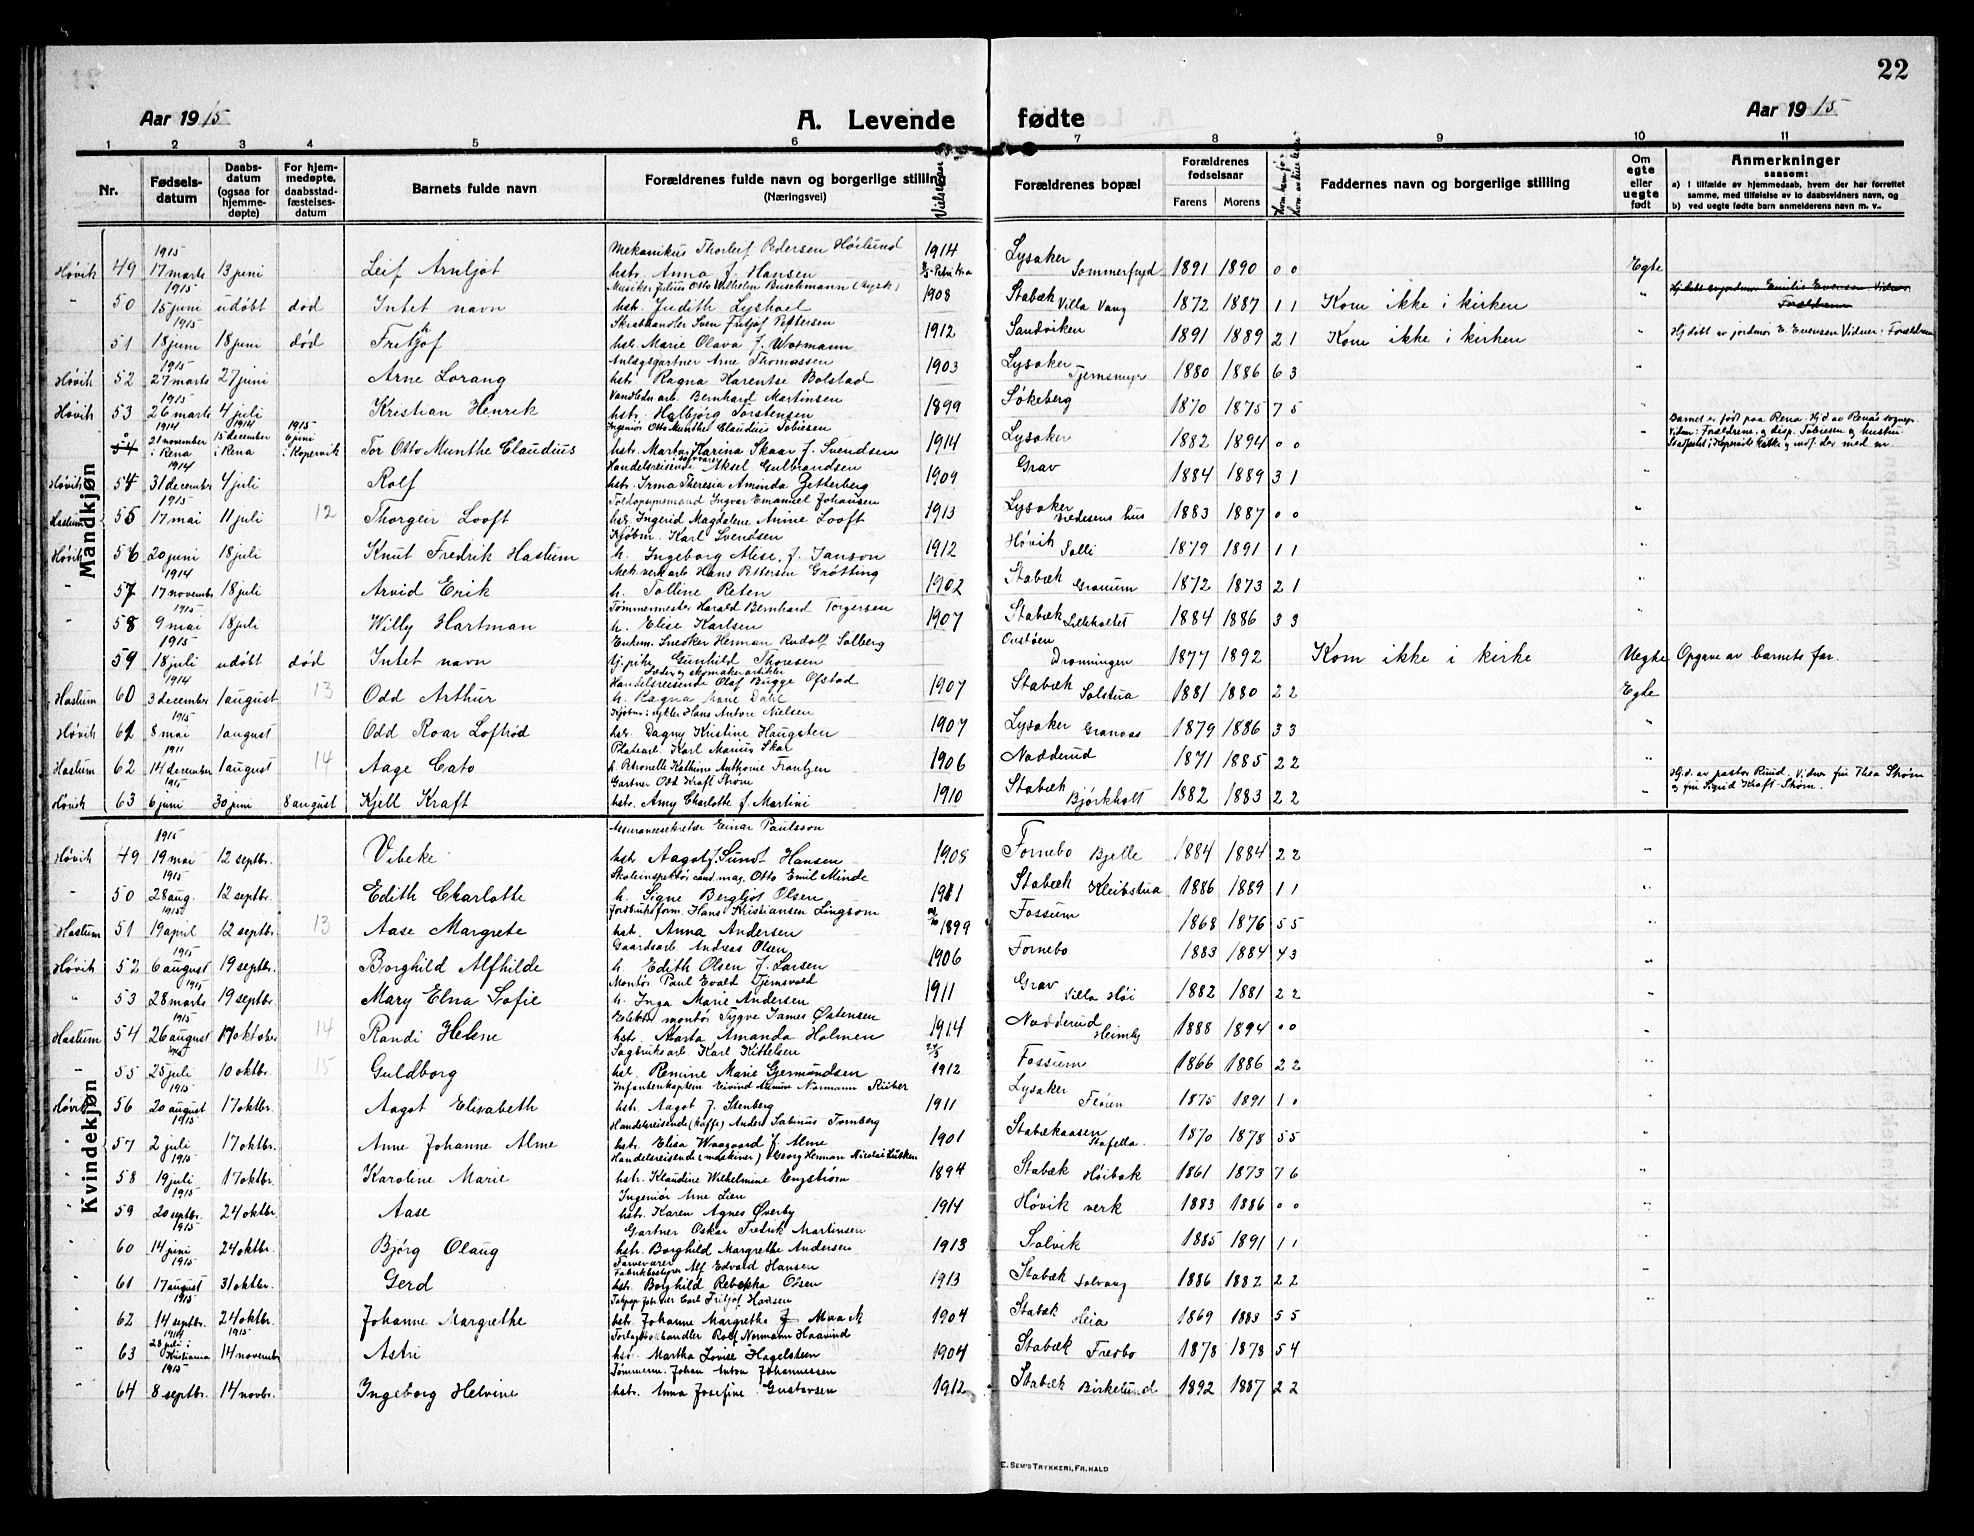 22
Aar 1915 A. Levende fødte Aar 1915
1 2 3 4 5 6 7 8 9 10 11
Nr. Fødsels-datum Daabs-datum (ogsaa for hjemme-døpte) For hjem-medøpte, daabsstad-fæstelses-datum Barnets fulde navn Forældrenes fulde navn og borgerlige stilling (Næringsvei) Forældrenes bopæl Forældrenes fødselsaar Farens Morens Faddernes navn og borgerlige stilling Om egte eller uegte født Anmerkninger saasom: a) i tilfælde av hjemmedaab, hvem der har forrettet samme, med tilføielse av to daabsvidners navn, og b) ved uegte fødte barn anmelderens navn m. v.
Mandkjøn
1915 Mekanikus Thorleif Pedersen Höilund
Høvik 49 17 marts 13 juni Leif Arnljot hstr. Anna f. Hansen 1914 Lysaker Sommerfryd 1891 1890 0 0 Egte
1915 Musiker Julius Otto Wilhelm Buschmann (tysk)
" 50 15 juni udøbt død Intet navn hst. Judith Lyshoel 1908 Stabæk Villa Vang 1872 1887 1 1 Kom ikke i kirken "
1915 Skrabhandler Sven Fritjof Pettersen
51 18 juni 18 juni død Fritjof hst. Marie Olava f. Wormann 1912 Sandviken 1891 1889 2 1 Kom ikke i kirken " Hj døbt av jordmor E. Evensen Vidner: Forældrene
1915 Anlægsgartner Arne Thomassen
Høvik 52 27 marts 27 juni Arne Lorang hstr. Ragna Karentse Bolstad 1903 Lysaker Tjernsmyr 1880 1886 6 3 "
1915 Vandledn.arb. Bernhard Martinsen
Høvik 53 26 marts 4 juli Kristian Henrik hstr. Halbjørg Torstensen 1899 Søkeberg 1870 1875 7 5 "
1914 1914 1915 Ingeniør Otto Munthe Claudius Tobiesen
21 november i Rena 15 december i Rena 6 juni i Kopervik Tor Otto Munthe Claudius hstr. Martha Karina Skaar f. Svendsen 1914 Lysaker 1882 1894 0 0 "
1914 Handelsreisende Aksel Gulbrandsen
Høvik 54 31 december 4 juli Rolf hstr. Irma Theresia Aminda Zetterberg 1909 Grav 1884 1889 3 1 "
1915 Toldopsynsmand Ingvar Emanuel Johansen
Haslum 55 17 mai 11 juli 12 Thorgeir Looft hst. Ingerid Magdalene Anine Looft 1913 Lysaker 1883 1887 0 0 "
Kjøbm. Karl Svendsen
Høvik 56 20 juni 18 juli Knut Fredrik Haslum h. Ingeborg Alise f. Janson 1912 Høvik Solli 1879 1891 1 1 "
1914 Mek. verk arb Hans Pettersen Grøtting
" 57 17 november 18 juli Arvid Erik h. Talline Reten 1902 Stabæk Granum 1872 1873 2 1 "
1915 Tømmermester Harald Bernhard Torgersen
" 58 9 mai 18 juli Willy Hartman h. Elise Karlsen 1907 Stabæk Lilleholtet 1884 1886 3 3 "
1915 Enkem. Snedker Herman Rudolf Solberg
59 18 juli udøbt død Intet navn Gunhild Thoresen Dronningen 1877 1892 Kom ikke i kirke Uegte Opgave av barnets far.
1914 Handelsreisende Olaf Bugge Ofstad
Haslum 60 3 december 1 august 13 Odd Arthur h. Ragna Anne Dahl 1907 Stabæk Solstua 1881 1880 2 2 Egte
1915 Hans Anton Nielsen
Høvik 61 8 mai 1 august Odd Roar Loftrød hst. Dagny Kristine Haugsten 1907 Lysaker Granaas 1879 1886 3 3 "
1911 Platearb. Karl Marius Skar
Haslum 62 14 december 1 august 14 Aage Cato h. Petronelle Kathrine Anthonie Frantzen 1906 Nadderud 1871 1885 2 2 "
1915 Gartner Odd Kraft Strøm Hj.d. av pastor Ruud. Vidner fru Thea Strøm
Høvik 63 6 juni 30 juni 8 august Kjell Kraft hstr. Amy Charlotte f. Martini 1910 Stabæk Bjørkholt 1882 1883 2 2 " og frk Sigrid Kraft-Strøm.
Kvindekjøn
1915 Assurancesekretær Einar Paulsson
Høvik 49 19 mai 12 septbr. Vibeke hstr. Aagot f. Sundt Hansen 1905 Fornebo Bjelle 1884 1884 2 2 "
1915 Skoleinspektør cand. mag. Otto Emil Minde
" 50 28 aug. 12 septbr. Edith Charlotte h. Signe Bergljot Olsen 1911 Stabæk Kleibstua 1886 1889 1 1 "
1915 Hans Kristiansen Lingsom
Haslum 51 19 april 12 septbr. 13 Aase Margrete hst. Anna Andersen 1899 Fossum 1868 1876 5 5 "
1915 Gaardsarb. Andreas Olsen
Høvik 52 6 august 19 septbr. Borghild Alfhilde h. Edith Olsen f. Larsen 1906 Fornebo 1883 1884 4 3 "
1915 Montør Paul Evald Tjernsvold
" 53 28 marts 19 septbr. Mary Elna Sofie h. Inga Marie Andersen 1911 Grav Villa Høi 1882 1881 2 2 "
1915 Elektr. montør Tygve James Østensen
Haslum 54 26 august 17 oktober 14 Randi Helene hst. Marta Amanda Holmen 1914 Nadderud Heimly 1888 1894 0 0 "
Sagbruksarb. Karl Kittelsen
" 55 25 juli 10 oktbr. 15 Guldborg hst. Remine Marie Gjermundsen 1912 Fossum 1866 1886 2 2 "
1915 Infanterikaptein Eivind Normann Riiber
Høvik 56 20 august 17 oktbr. Aagot Elisabeth hstr. Aagot f. Stenberg 1911 Lysaker 1875 1891 1 0 "
1915 Handelsreisende (kaffe) Anders Sabinus Tornberg
" 57 2 juli 17 oktbr. Anne Johanne Alme hstr. Elisa Waagaard f. Alme 1901 Stabækaasen Stafetta. 1870 1878 5 5 "
1915 Handelsreisende (maskiner) Georg Herman Nicolai Lütken
" 58 19 juli 17 oktbr. Karoline Marie hstr. Klaudine Wilhelmine Engstrøm 1894 Stabæk Høibak 1861 1873 7 6 "
1915 Ingeniør Arne Lien
" 59 20 septbr. 24 oktbr. Aase hstr. Karen Agnes Øverby 1914 Høvik verk 1883 1886 0 0 "
1915 Gartner Oskar Fredrik Martinsen
" 60 14 juni 24 oktbr. Bjørg Olaug hstr. Borghild Margrethe Andersen 1913 Solvik 1885 1891 1 1 "
1915 Fabrikbestyrer Alf Edvard Hansen
" 61 17 august 31 oktbr. Gerd hst. Borghild Rebekka Olsen 1913 Stabæk Solvang 1886 1882 2 2 "
1915 Carl Fritjof Hansen
" 62 14 septbr. 24 oktbr. Johanne Margrethe hstr. Johanne Margrethe f. Maack 1904 Stabæk Heia 1869 1883 5 5 "
1914 1915 Forlagsboghandler Rolf Normann Haavind
" 63 28 juli i Kristiania 14 november Astri hsr. Martha Lovise Hagelsteen 1904 Stabæk Fredbo 1878 1878 5 4 "
1915 Tømmerm. Johan Anton Johannessen
" 64 8 septbr. 14 novbr. Ingeborg Helvine hstr. Anna Josefine Gustavsen 1912 Stabæk Birkelund 1892 1887 2 2 "
E. SEM'S TRYKKERI, FR.HALD